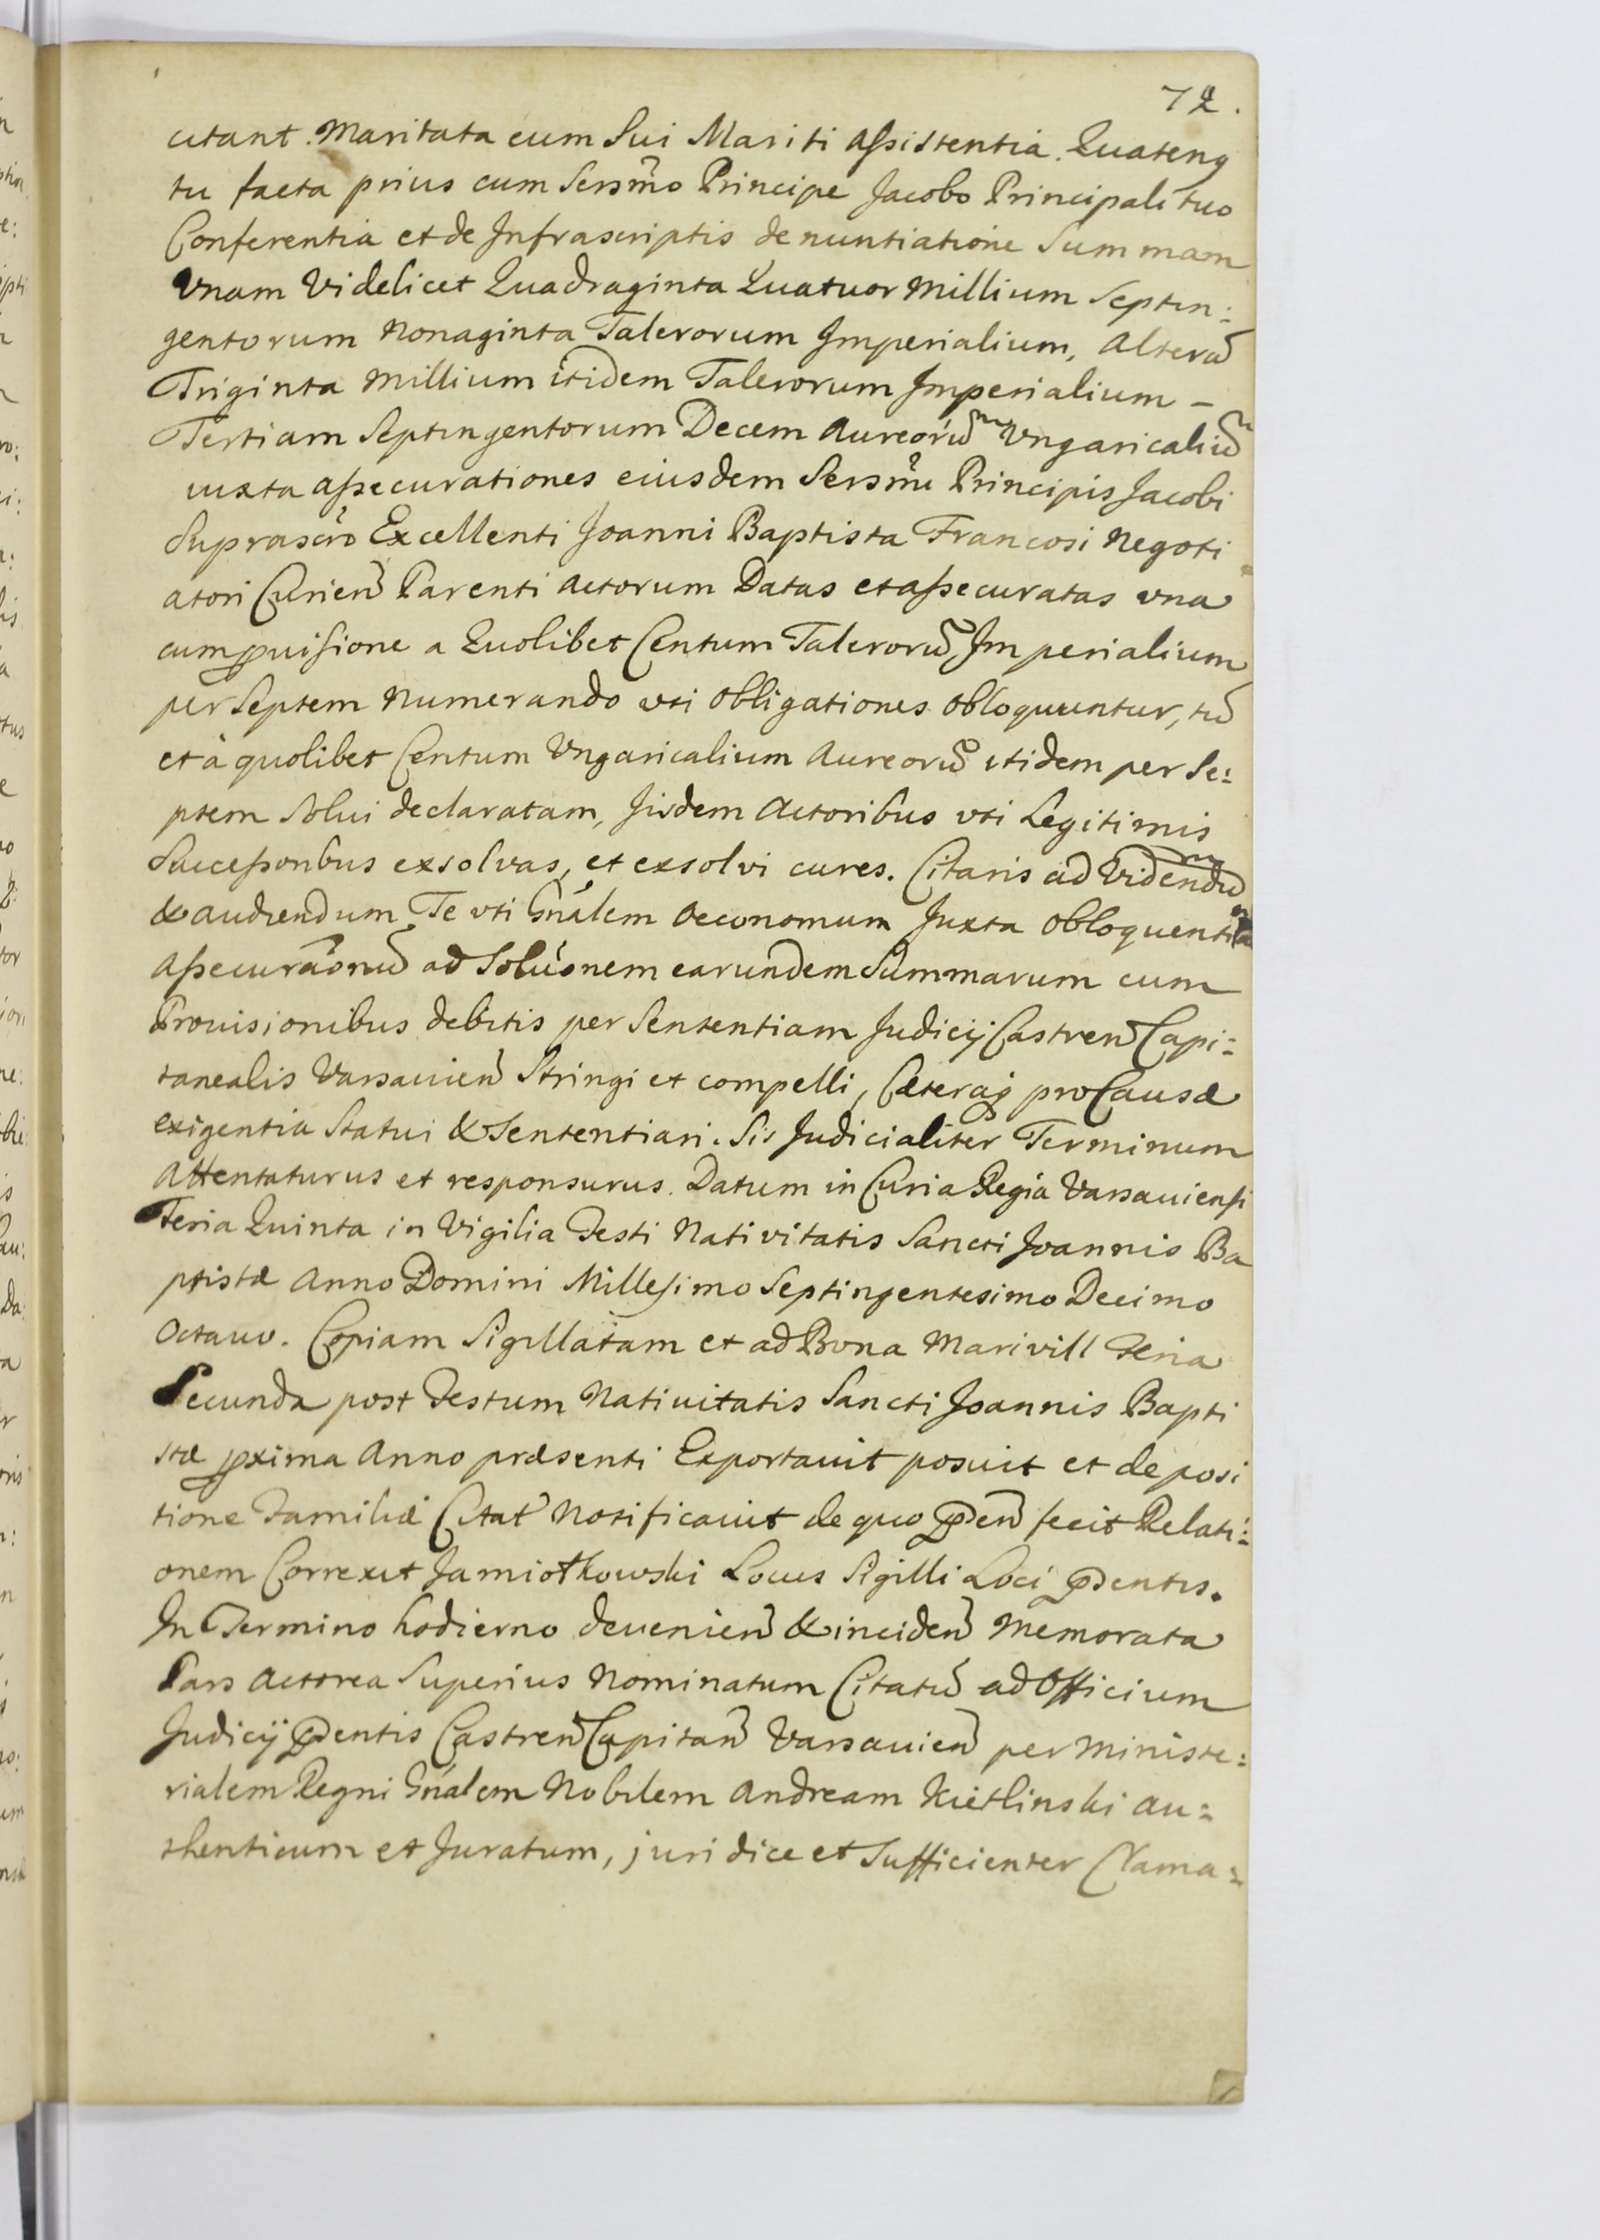 72.
citant. Maritata cum Sui Mariti Assistentia. Quateng
tu facta prius cum Sersm̃o Principe Jacobo Principali tuo
Conferentia et de Infrascriptis denuntiatione Summam
Vnam Videlicet Quadraginta Quatuor Millium Septin:
gentorum Nonaginta Talerorum Imperialium, Alterũ
Triginta Millium itidem Talerorum Imperialium –
Tertiam Septingentorum Decem Aureorũ Vngaricaliũ
iuxta assecurationes eiusdem Sersm̃i Principis Jacobi
Suprascr̃o Excellenti Joanni Baptista Francosi Negoti
atori Curieñ Parenti Actorum Datas et assecuratas vna
cum ꝓuisione a Quolibet Centum Talerorũ Imperialium
per Septem Numerando vti Obligationes obloquuntur, tũ
et à quolibet Centum Vngaricalium Aureorũ itidem per Se:
ptem Solui declaratam, Iisdem Actoribus vti Legitimis
Successoribus exsolvas, et exsolvi cures. Citaris ad Videndũ
& audiendum Te vti Gñalem Oeconomum Juxta obloquentia
Assecurãonũ ad Soluõnem earundem Summarum cum
Prouisionibus debitis per Sententiam Judicij Castreñ Capi:
tanealis Varsauieñ Stringi et compelli, Cæteraq pro Causæ
exigentia Statui & Sententiari. Sis Judicialiter Terminum
Attentaturus et responsurus. Datum in Curia Regia Varsauiensi
Feria Quinta in Vigilia Festi Nativitatis Sancti Joannis Ba
ptistæ Anno Domini Millesimo Septingentesimo Decimo
Octauo. Copiam Sigillatam et ad Bona Marivill Feria
Secunda post Festum Natiuitatis Sancti Joannis Bapti
stæ ꝓxima Anno præsenti Exportauit posuit et de posi
tione Familiæ Citat Notificauit de quo p̃deñ fecit Relati:
onem Correxit Jamiołkowski Locus Sigilli Loci p̃dentis.
In Termino hodierno deuenieñ & incideñ Memorata
Pars Actorea Superius Nominatum Citatũ ad Officium
Judicij p̃dentis Castreñ Capitañ Varsauieñ per Ministe:
rialem Regni Gñalem Nobilem Andream Kietlinski au:
thenticum et Juratum, juridice et Sufficienter Clama: